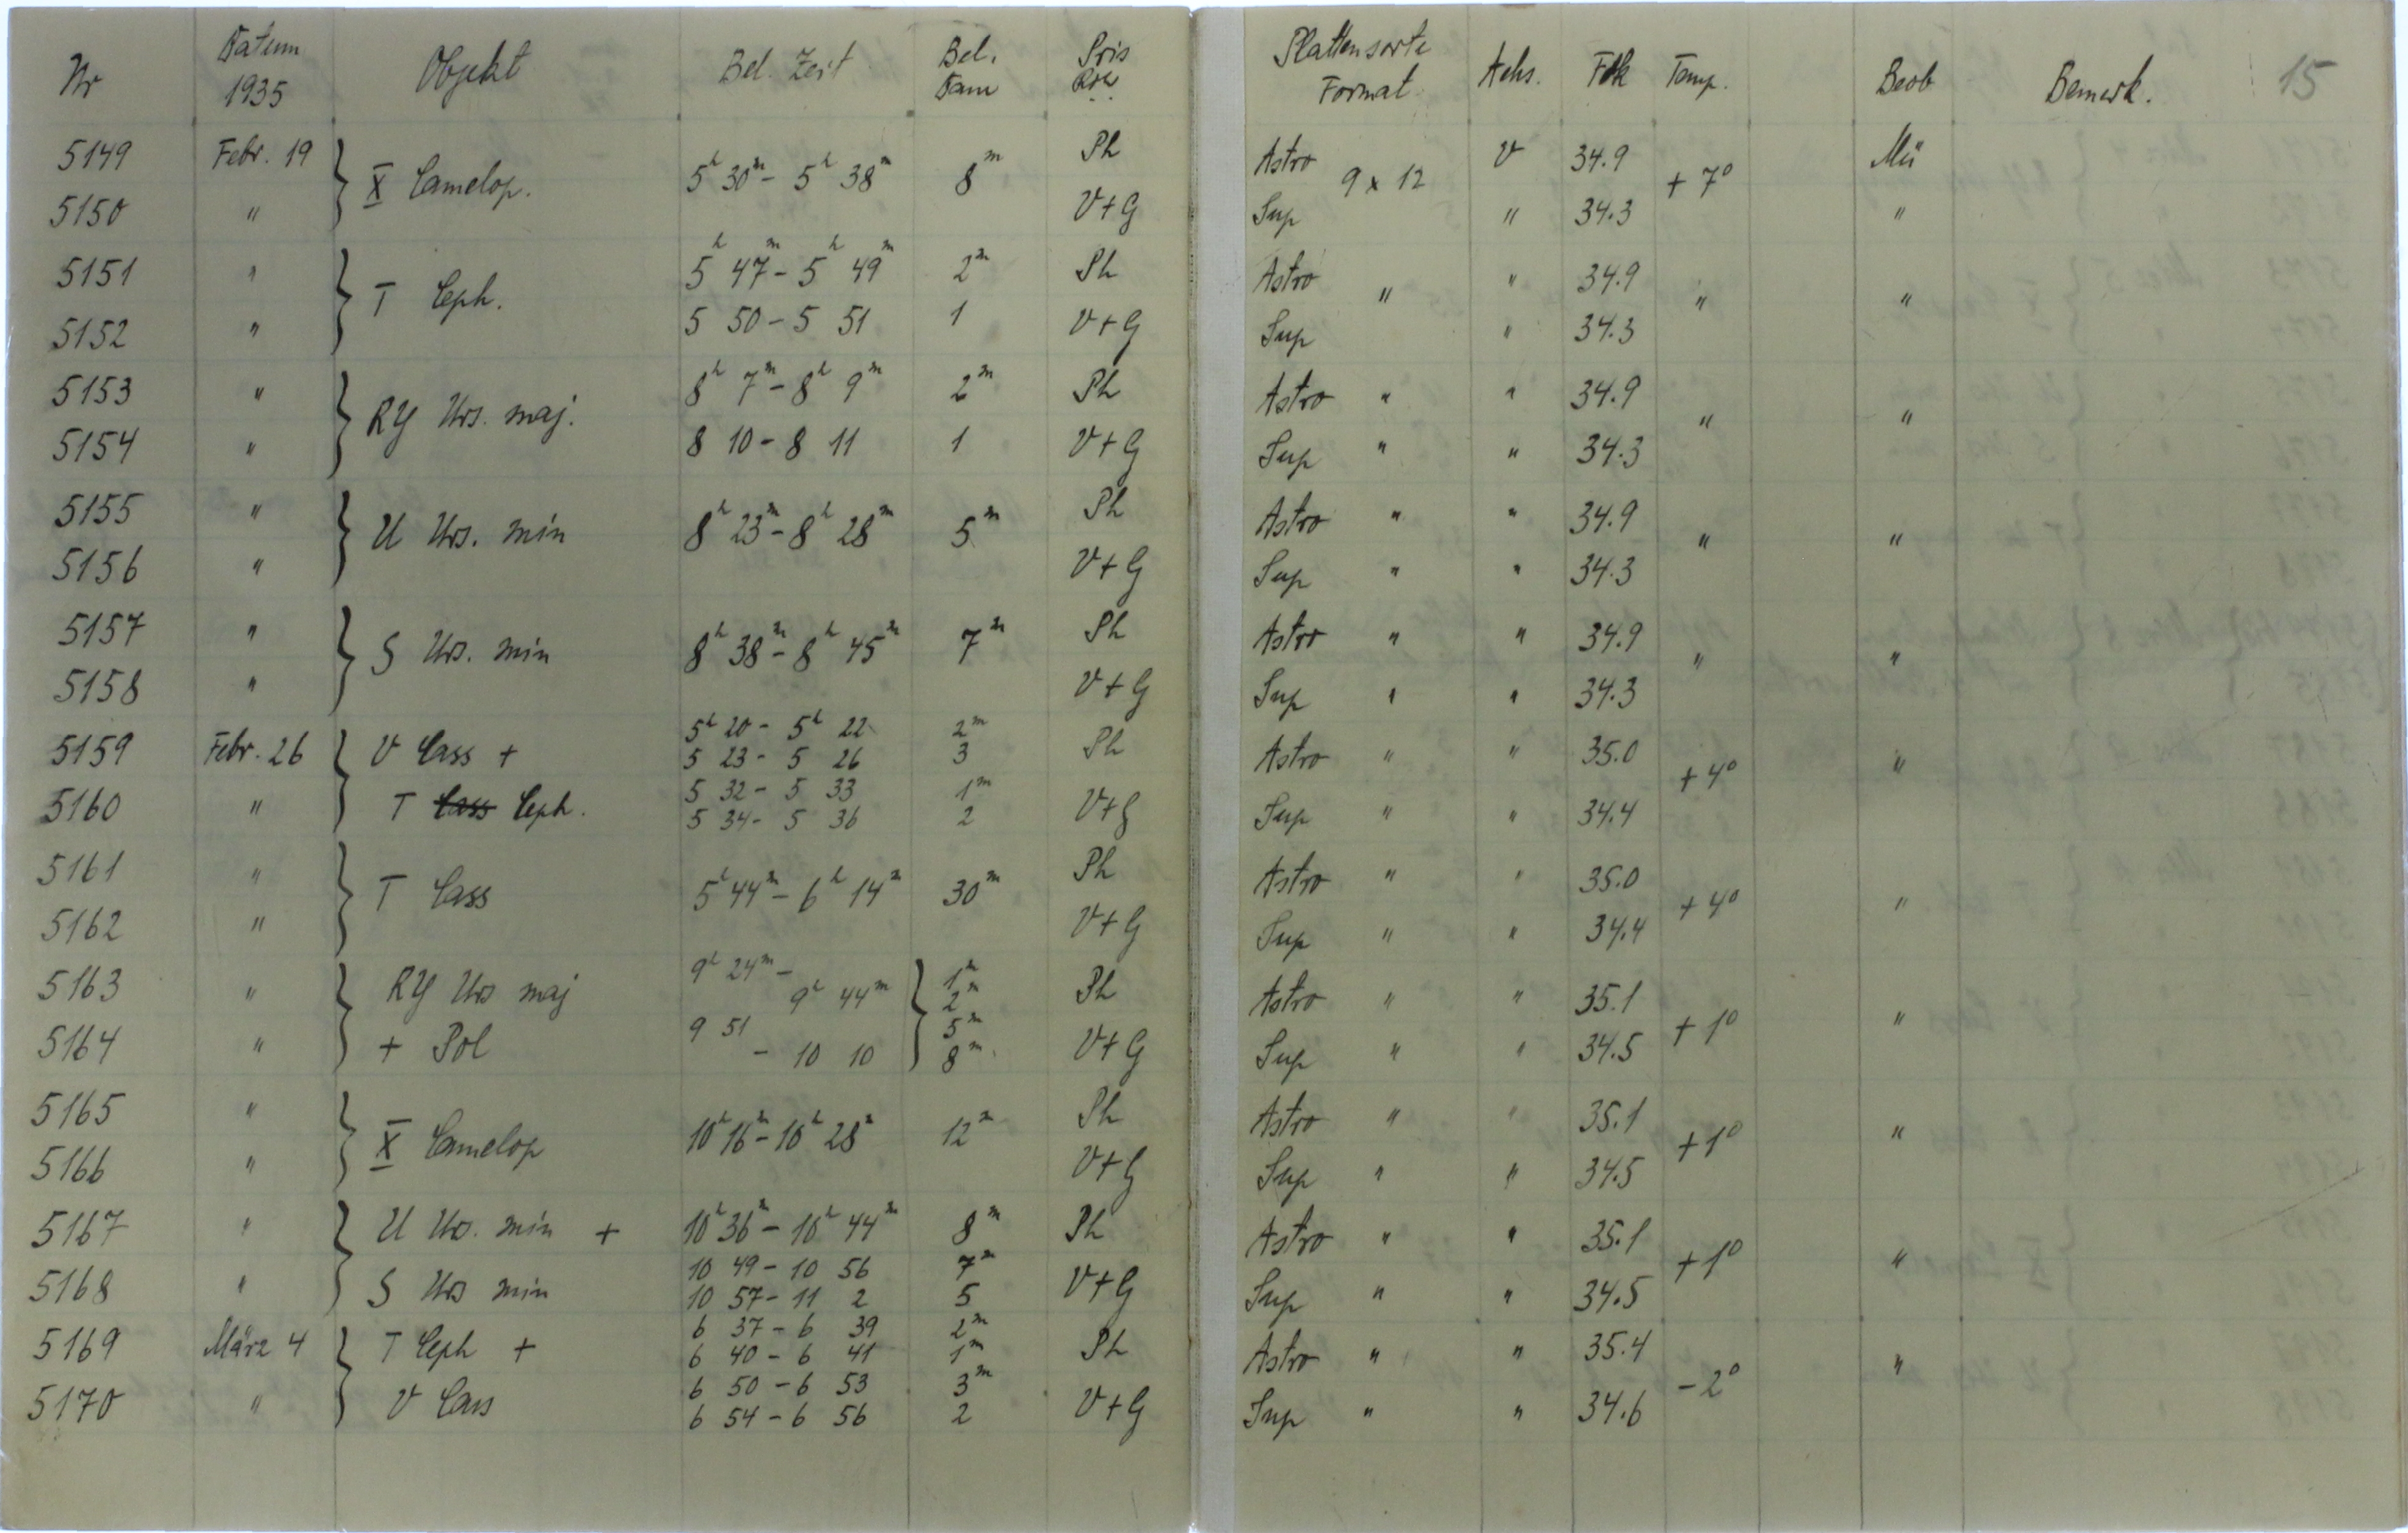 Nr Datum 1935 Objekt Bel. Zeit Bel. Dam Pris Plattensorte Format Achs. Fok Temp. Beob Bemerk. 15
5149 Febr. 19 X Camelop. 5h 30m - 5h 38m 8m Ph Astro 9 x 12 V 34.9 + 7° Mü
5150 " V+G Sup " 34.3 "
5151 " T Ceph. 5h 47m - 5h 49m 2m Ph Astro " " 34.9 " "
5152 " 5 50 - 5 51 1 V+G Sup " 34.3
5153 " RY Urs. maj. 8h 7m - 8h 9m 2m Ph Astro " " 34.9 " "
5154 " 8 10 - 8 11 1 V+G Sup " " 34.3
5155 " U Urs. min 8h 23m - 8h 28m 5m Ph Astro " " 34.9 " "
5156 " V+G Sup " " 34.3
5157 " S Urs. min 8h 38m - 8h 45m 7m Ph Astro " " 34.9 " "
5158 " V+G Sup " " 34.3
5159 Febr. 26 V Cass + 5h 20 - 5h 22 2m Ph Astro " " 35.0 + 4° "
5 23 - 5 26 3
5160 " T Cass Ceph. 5 32 - 5 33 1m V+G Sup " " 34.4
5 34 - 5 36 2
5161 " T Cass 5h 44m - 6h 14m 30m Ph Astro " " 35.0 + 4° "
5162 " V+G Sup " " 34.4
5163 " RY Urs maj 9h 24m - 9h 44m 1m 2m Ph Astro " " 35.1 + 1° "
5164 " + Pol 9 51 - 10 10 5m 8m V+G Sup " " 34.5
5165 " X Camelop 10h 16m - 10h 28m 12m Ph Astro " " 35.1 + 1° "
5166 " V+G Sup " " 34.5
5167 " U Urs. min + 10h 36m - 10h 44m 8m Ph Astro " " 35.1 + 1° "
10 49 - 10 56 7m
5168 " S Urs min 10 57 - 11 2 5 V+G Sup " " 34.5
5169 März 4 T Ceph + 6 37 - 6 39 2m Ph Astro " " 35.4 - 2° "
6 40 - 6 41 1m
5170 " V Cass 6 50 - 6 53 3m V+G Sup " " 34.6
6 54 - 6 56 2